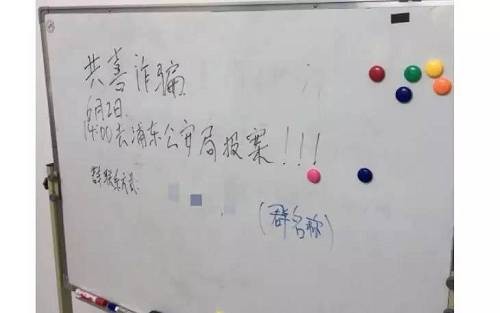 共喜诈骗
6月2日
14:00去浦东公安局报案!!!
群联系方式:
(群名称)